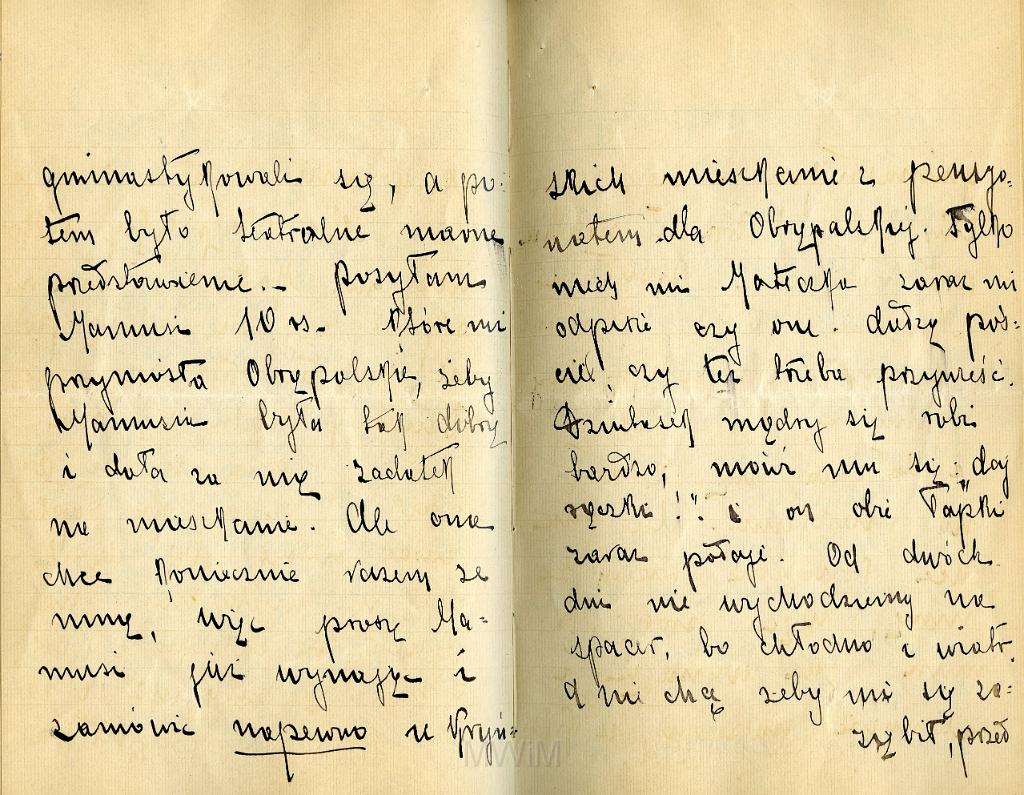 gminastykowali się, a po-
tem było teatralne marne
przedstawienie. - Posyłam
Mamusi 10 rs. które mi
przyniosła Obrępalska, żeby
Mamusia była tak dobrą
i dała za nią zadatek
na mieszkanie. Ale ona
chce koniecznie razem ze
mną, więc proszę Ma-
musi już wynająć i
zamówić napewno u
skich mieszkanie z pensyo-
natem dla Obrępalskiej. Tylko
niech mi Mateczka zaraz mi
odpisze czy one dadzą poś-
ciel, czy też trzeba przywieść.
Dziubasek mądry się robi
bardzo, mówi mu się: "daj
rączki!" i on obie łapki
zaraz podaje. Od dwóch
dni nie wychodziemy na
spacer, bo chłodno i wiatr,
a nie chcę żeby mi się za-
ziębił, przed
MWiM